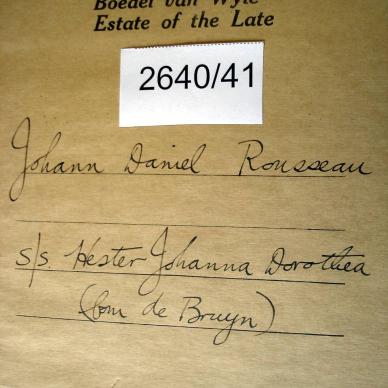 Boedel van Wyle
Estate of the Late
2640/41
Johann Daniel Rousseau
s/s. Hester Johanna Dorothea
(born de Bruyn)